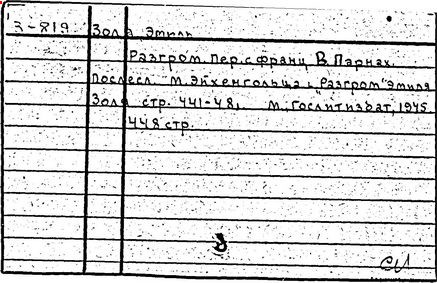 З-819 Золя Эмиль
Разгром. Пер. с франц. В. Парнах.
Послесл. М. Эйхенгольца: "Разгром" Эмиля
Золя стр. 441-48, М. Гослитиздат, 1945
448 стр.